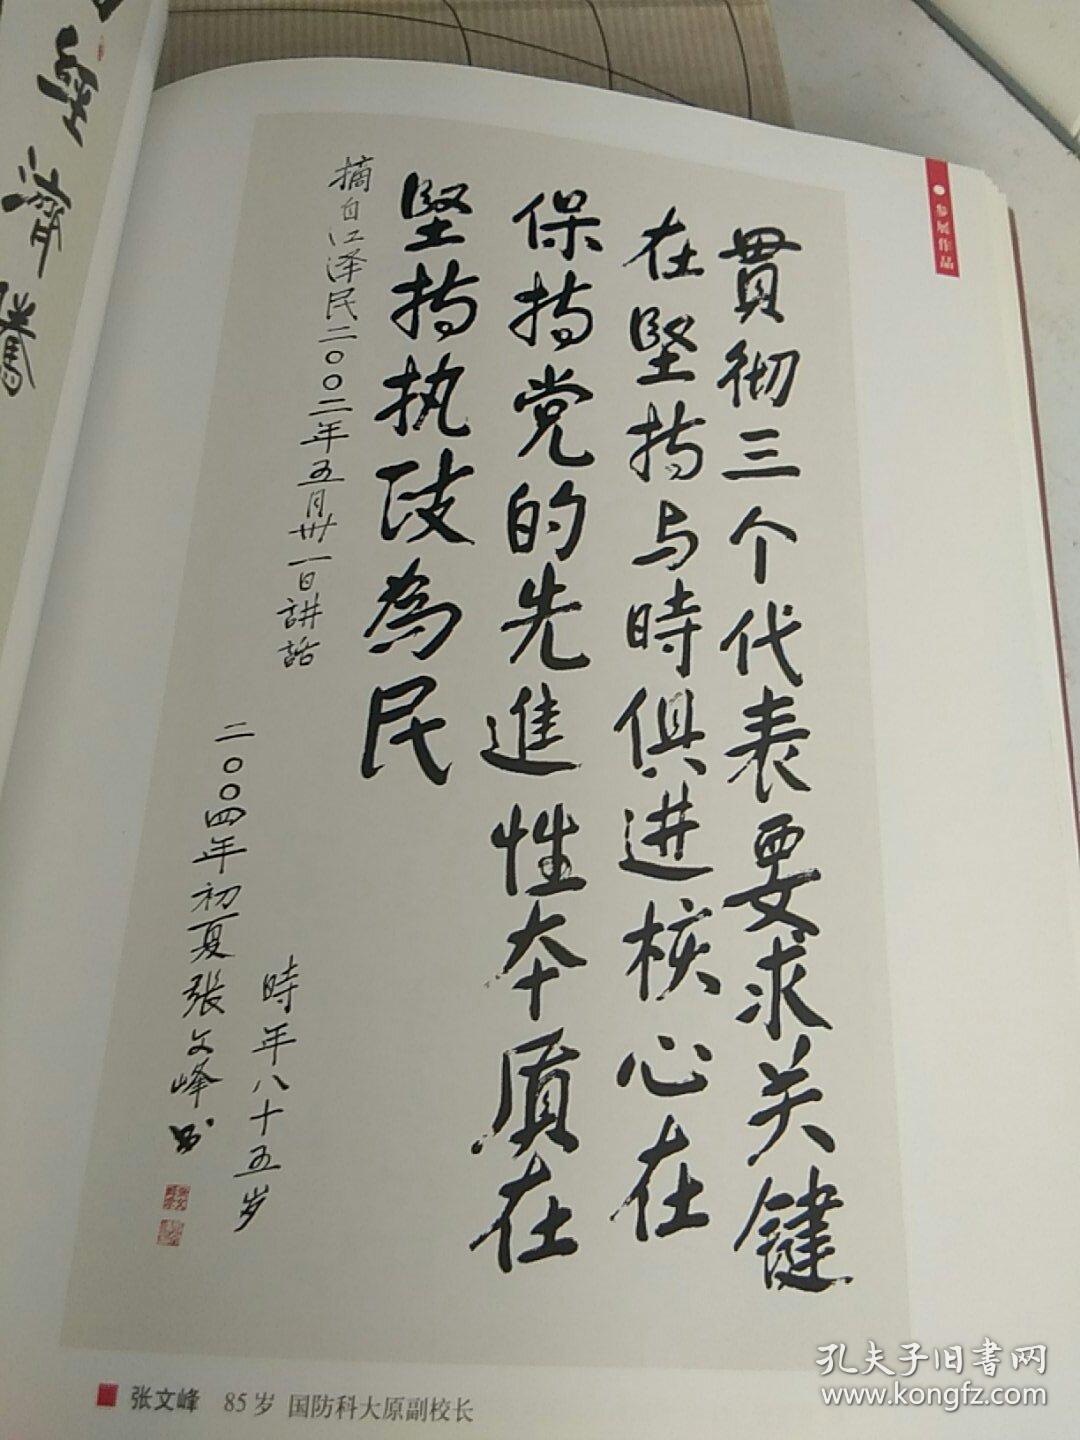 贯彻三个代表要求关键
在坚持与時俱进核心在
保持党的先進性本质在
坚持执政為民
摘自江泽民二〇〇二年五月卅一日講話
時年八十五岁
二〇〇四年初夏張文峰书
参展作品
张文峰 85岁 国防科大原副校长
孔夫子旧书网
www.kongfz.com
濟
騰